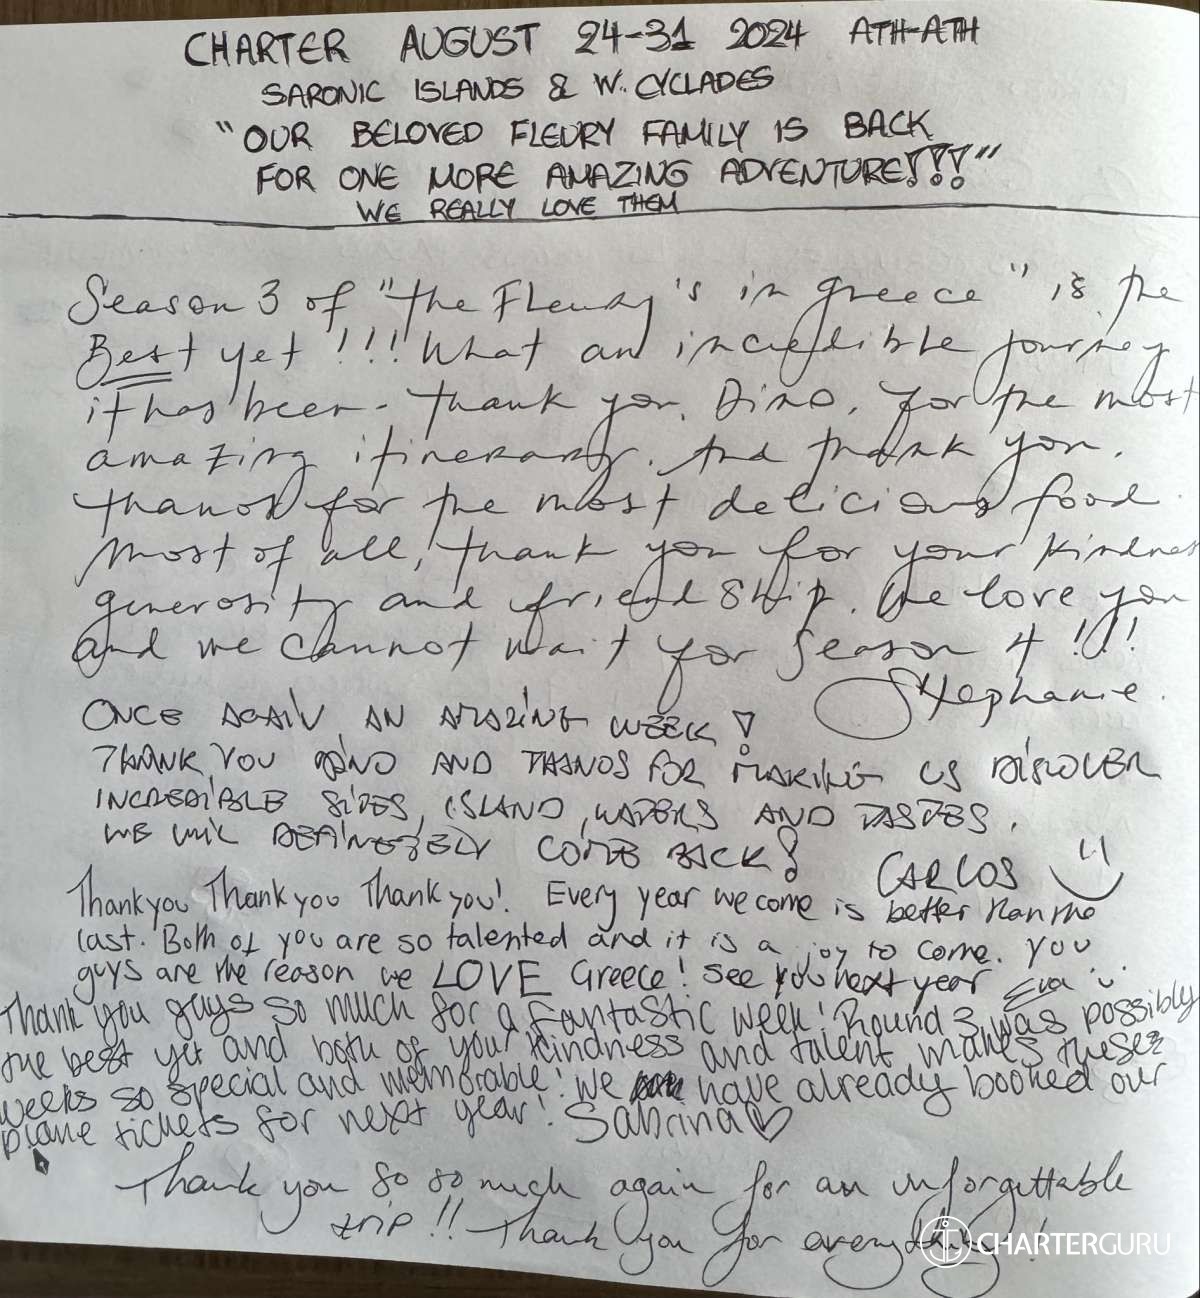 CHARTER AUGUST 24-31 2024 ATH-ATH
SARONIC ISLANDS & W. CYCLADES
"OUR BELOVED FLEURY FAMILY IS BACK
FOR ONE MORE AMAZING ADVENTURE!!!"
WE REALLY LOVE THEM
Season 3 of "the Fleury's in greece" is the
Best yet!!! What an incredible journey
it has been. Thank you, Dino, for the most
amazing itinerary. And thank you,
thanos for the most delicious food.
Most of all, thank you for your kindnes
generosity and friendship. We love you
and we cannot wait for Season 4!!!
Stephanie.
ONCE AGAIN, AN AMAZING WEEK!
THANK YOU DINO AND THANOS FOR MAKING US DISCOVER
INCREDIBLE SITES, ISLAND, WATERS AND TASTES.
WE WILL DEFINETELY COME BACK!
CARLOS
Thankyou Thankyou Thankyou! Every year we come is better than the
last. Both of you are so talented and it is a joy to come. You
guys are the reason we LOVE Greece! See you next year Eva
Thank you guys so much for a fantastic week! Round 3 was possibly
the best yet and both of your kindness and talent makes these
weeks so special and memorable! We have already booked our
plane tickets for next year! Sabrina
Thank you so so much again for an unforgettable
trip!! Thank you for everything!
CHARTERGURU